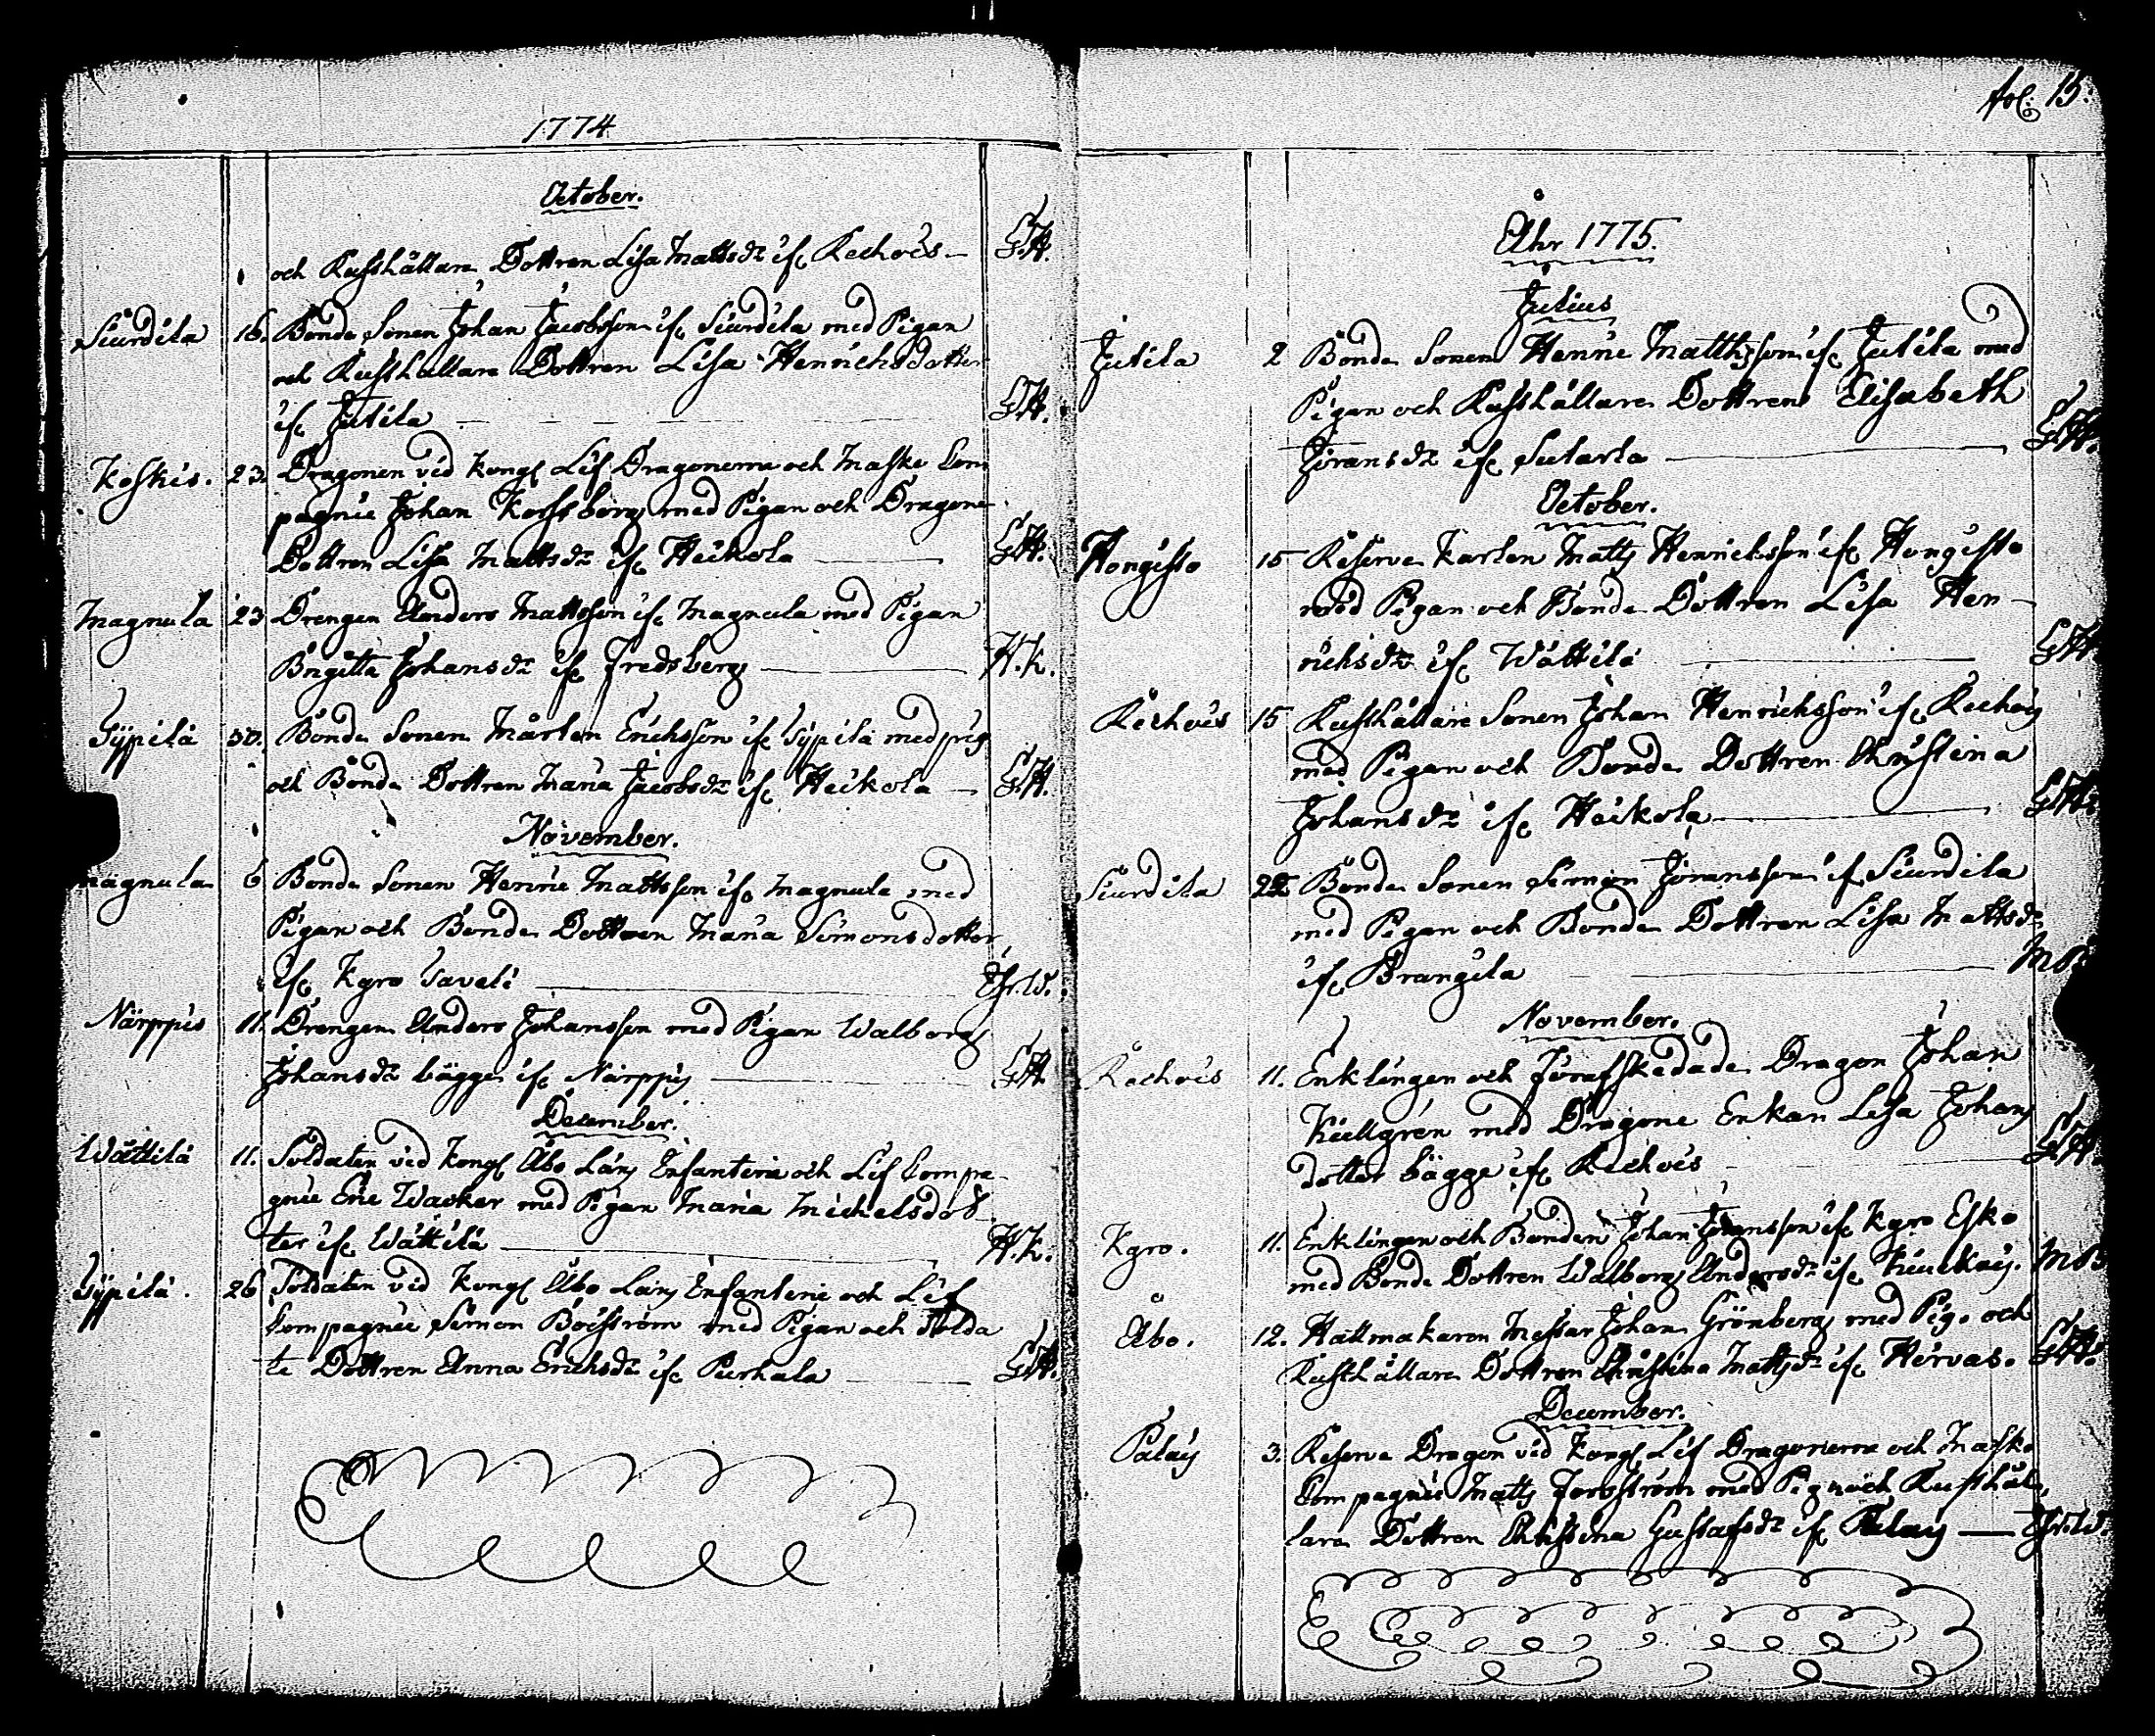 1774
October.
och Rusthållare Dottren Lisa Mattsdr if. Reckois — G.H.
Siurdila 16. Bonde Sonen Johan Jacobsson if. Siurdila med Pigan
och Rusthållare Dottren Lisa Henrichsdotter
if. Jutila — G.H.
Koskis. 23. Dragonen vid Kongl Lif Dragonerne och Masko Com
pagnie Johan Forssberg med Pigan och Dragone
Dottren Lisa Mattsdr if. Heikola — G.H.
Magnula 23 Drengen Anders Mattsson if. Magnula med Pigan
Brigitta Johansdr if. Fredsberg — H.K.
Sÿpilä 30. Bonde Sonen Mårten Erichsson if. Sÿpilä med pig
och Bonde Dottren Maria Jacobsdr if. Heikola — G.H.
November.
Magnula 6 Bonde Sonen Henric Mattsson if. Magnula med
Pigan och Bonde Dottren Maria Simonsdotter
if. Kyro Saveli — Thr.W.
Närppis 11. Drengen Anders Johansson med Pigan Walborg
Johansdr bägge if. Närppis — G.H.
December.
Wättilä 11. Soldaten vid Kongl Åbo Läns Infanterie och Lif Compa-
gnie Eric Wacker med Pigan Maria Michelsdot
ter if. Wättilä — H.K.
Sÿpilä. 26 Soldaten vid Kongl Åbo Läns Infanterie och Lif
Compagnie Simon Boisström med Pigan och Solda
te Dottren Anna Erichsdr if. Purhala — G.H.
fol. 15.
Åhr 1775.
Julius
Jutila 2 Bonde Sonen Henric Matthsson if. Jutila med
Pigan och Rusthållare Dottren Elisabeth
Jöransdr if. Sutarla — G.H.
October.
Hongisto 15 Reserve Karlen Matts Henrichsson if. Hongisto
med Pigan och Bonde Dottren Lisa Hen-
richsdr if. Wättilä — G.H.
Reckois 15 Rusthållare Sonen Johan Henrichsson if. Reckois
med Pigan och Bonde Dottren Christina
Johansdr if. Heikola — G.H.
Siurdila 22 Bonde Sonen Simon Jöransson if. Siurdila
med Pigan och Bonde Dottren Lisa Mattsdr
if. Prangila —
November.
Reckois 11. Enklingen och förafskedade Dragon Johan
Kiellgren med Dragone Enkan Lisa Johans
dotter bägge if. Reckois — G.H.
Kyro. 11. Enklingen och Bonden Johan Johansson if. Kyro Esko
med Bonde Dottren Walborg Andersdr if.
Åbo. 12. Hattmakaren Mestar Johan Grönberg med Pig. och
Rusthållare Dottren Christina Mattsdr if. Hervas. G.H.
December.
Palais 3. Reserve Dragon vid Kongl. Lif Dragonerne och Masko
Compagnie Matts Forsström med Pig. och Rusthål
lare Dottren Christina Gustafsdr if. Palais — Thr.W.